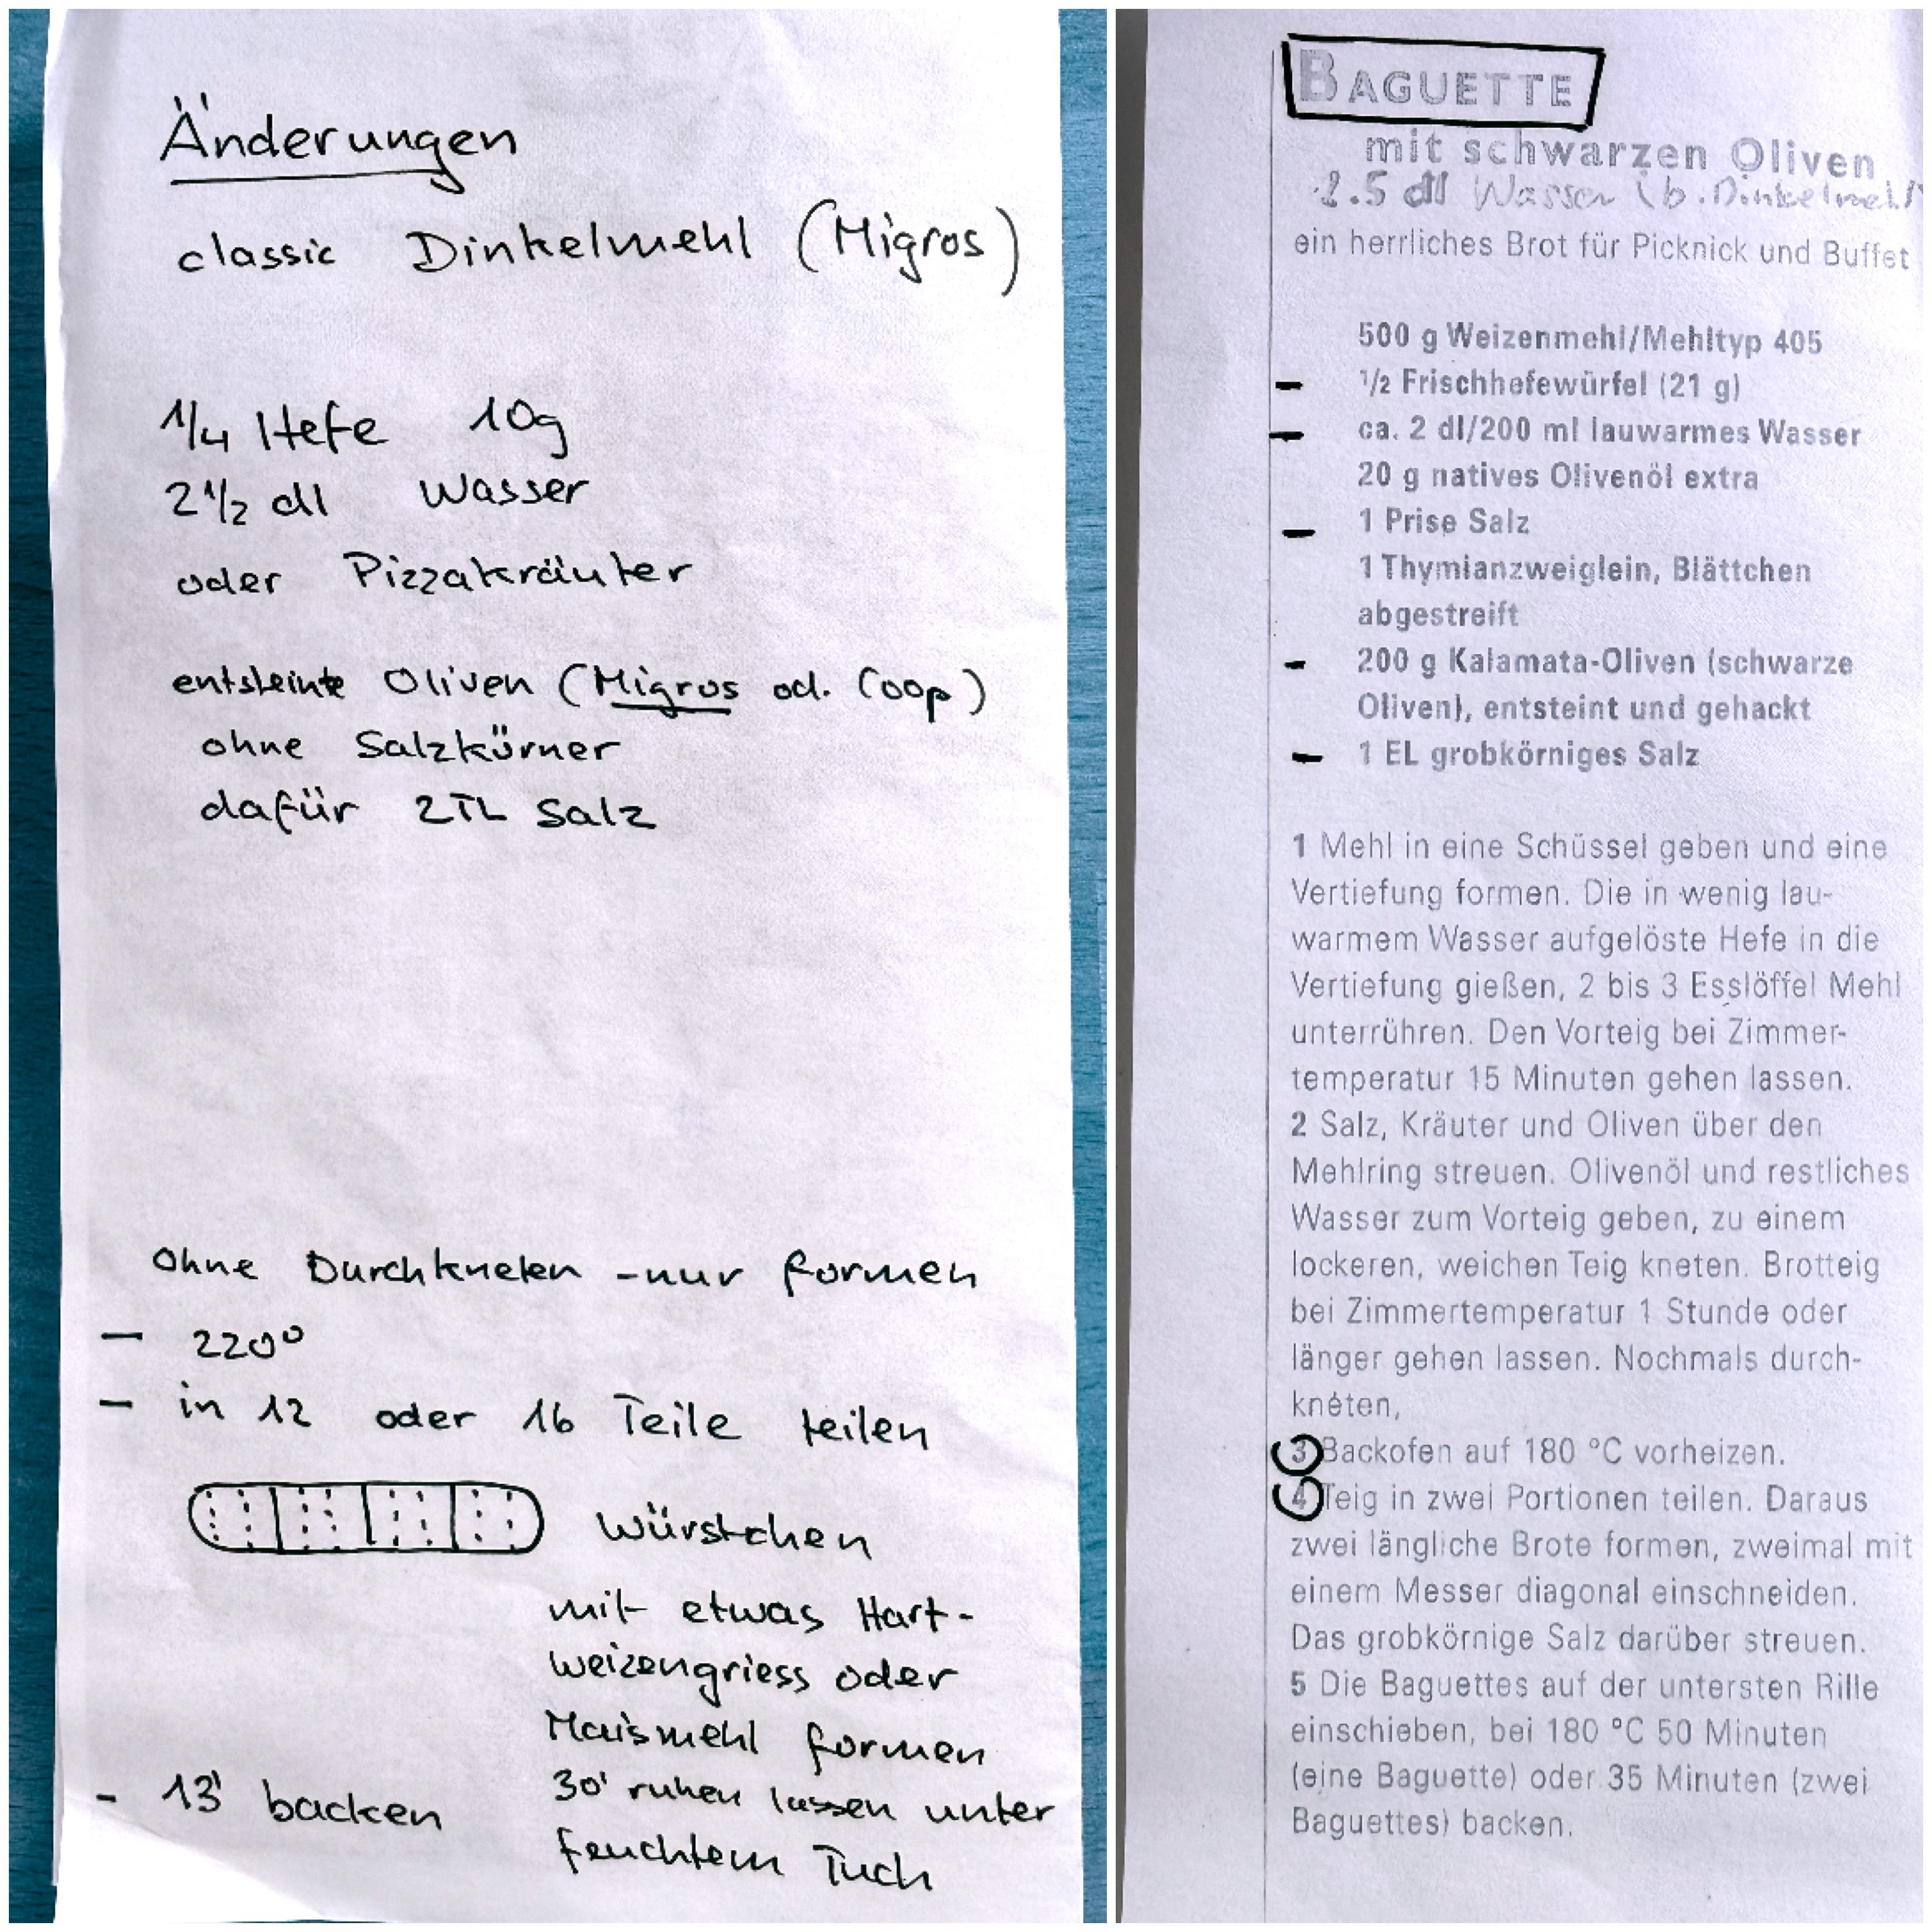 Änderungen
classic Dinkelmehl (Migros)
1/4 Hefe 10g
2 1/2 dl Wasser
oder Pizzakräuter
entsteinte Oliven (Migros od. Coop)
ohne Salzkörner
dafür 2TL Salz
ohne Durchkneten - nur formen
- 220°
- in 12 oder 16 Teile teilen
Würstchen
mit etwas Hart-
weizengriess oder
Maismehl formen
30' ruhen lassen unter
feuchtem Tuch
- 13' backen
BAGUETTE
mit schwarzen Oliven
2.5 dl Wasser (b. Dinkelmehl)
ein herrliches Brot für Picknick und Buffet
500 g Weizenmehl/Mehltyp 405
- 1/2 Frischhefewürfel (21 g)
- ca. 2 dl/200 ml lauwarmes Wasser
20 g natives Olivenöl extra
- 1 Prise Salz
1 Thymianzweiglein, Blättchen
abgestreift
- 200 g Kalamata-Oliven (schwarze
Oliven), entsteint und gehackt
- 1 EL grobkörniges Salz
1 Mehl in eine Schüssel geben und eine
Vertiefung formen. Die in wenig lau-
warmem Wasser aufgelöste Hefe in die
Vertiefung gießen, 2 bis 3 Esslöffel Mehl
unterrühren. Den Vorteig bei Zimmer-
temperatur 15 Minuten gehen lassen.
2 Salz, Kräuter und Oliven über den
Mehlring streuen. Olivenöl und restliches
Wasser zum Vorteig geben, zu einem
lockeren, weichen Teig kneten. Brotteig
bei Zimmertemperatur 1 Stunde oder
länger gehen lassen. Nochmals durch-
kneten,
3 Backofen auf 180 °C vorheizen.
4 Teig in zwei Portionen teilen. Daraus
zwei längliche Brote formen, zweimal mit
einem Messer diagonal einschneiden.
Das grobkörnige Salz darüber streuen.
5 Die Baguettes auf der untersten Rille
einschieben, bei 180 °C 50 Minuten
(eine Baguette) oder 35 Minuten (zwei
Baguettes) backen.